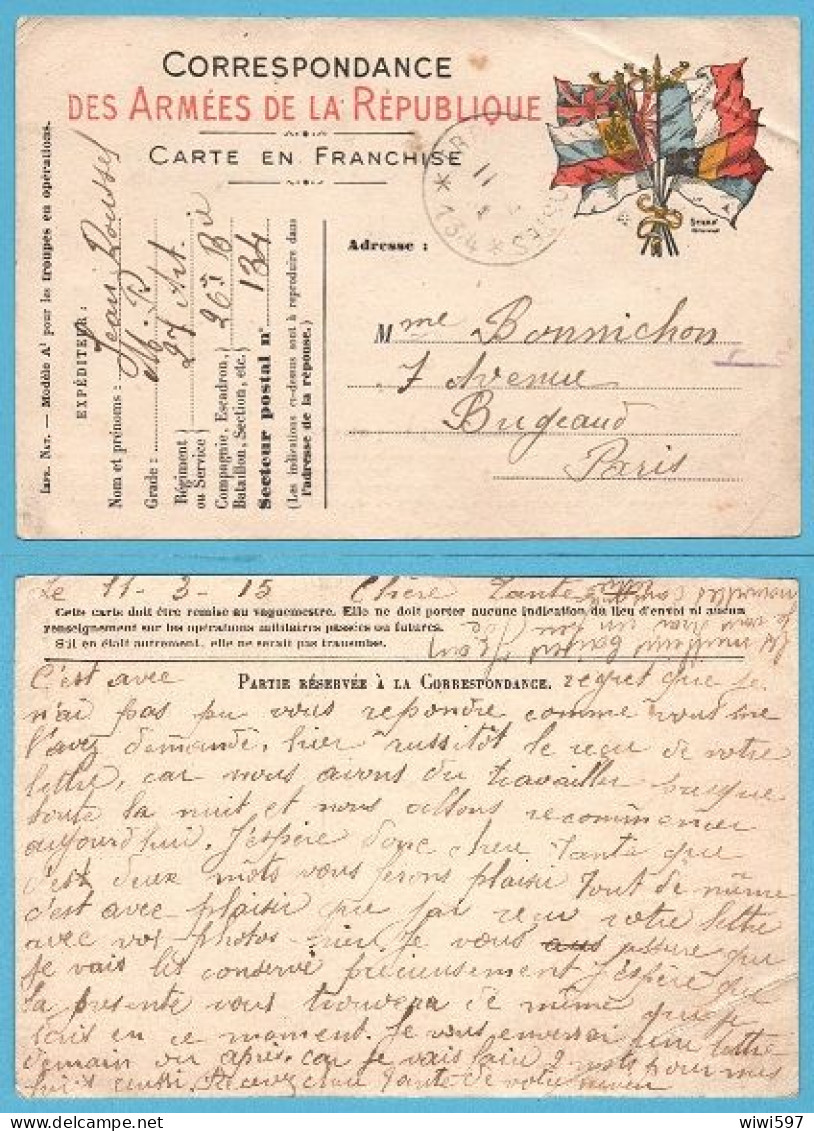 CORRESPONDANCE
DES ARMÉES DE LA RÉPUBLIQUE
CARTE EN FRANCHISE
Impr. Nat. — Modèle A¹ pour les troupes en opérations.
EXPÉDITEUR :
Nom et prénoms : Jean Roussel
Grade : M. P
Régiment ou Service } 27 Art.
Compagnie, Escadron, Bataillon, Section, etc. } 26è Bie
Secteur postal n° 134
(Les indications ci-dessus sont à reproduire dans
l'adresse de la réponse.)
11
134
Adresse :
Mme Bonnichon
7 Avenue
Bugeaud
Paris
Le 11-3-15 Chère Tante
Cette carte doit être remise au vaguemestre. Elle ne doit porter aucune indication du lieu d'envoi ni aucun
renseignement sur les opérations militaires passées ou futures.
S'il en était autrement, elle ne serait pas transmise.
PARTIE RÉSERVÉE À LA CORRESPONDANCE.
C'est avec regret que je
n'ai pas pu vous repondre comme vous me
l'avez demandé, hier aussitôt le reçu de votre
lettre, car nous avons du travailler presque
toute la nuit et nous allons recommencer
aujourd'hui. J'espère donc chere Tante que
c'est deux mots vous ferons plaisir tout de même
c'est avec plaisir que j'ai reçu votre lettre
avec vos photos hier. Je vous assure que
je vais les conservé précieusement J'espère que
la presente vous trouvera de même que je
suis en ce moment. Je vous enverrai une lettre
demain ou après, car je vais faire 2 mots pour mes
aussi. Recevez chere Tante de votre neveu
wiwi597